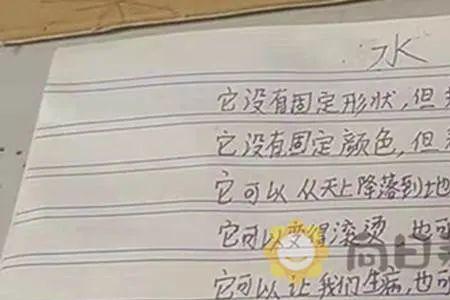 水
它没有固定形状,但
它没有固定颜色,但
它可以从天上降落到地
它可以变得滚烫 也可
它可以让我们生病,也可
向日